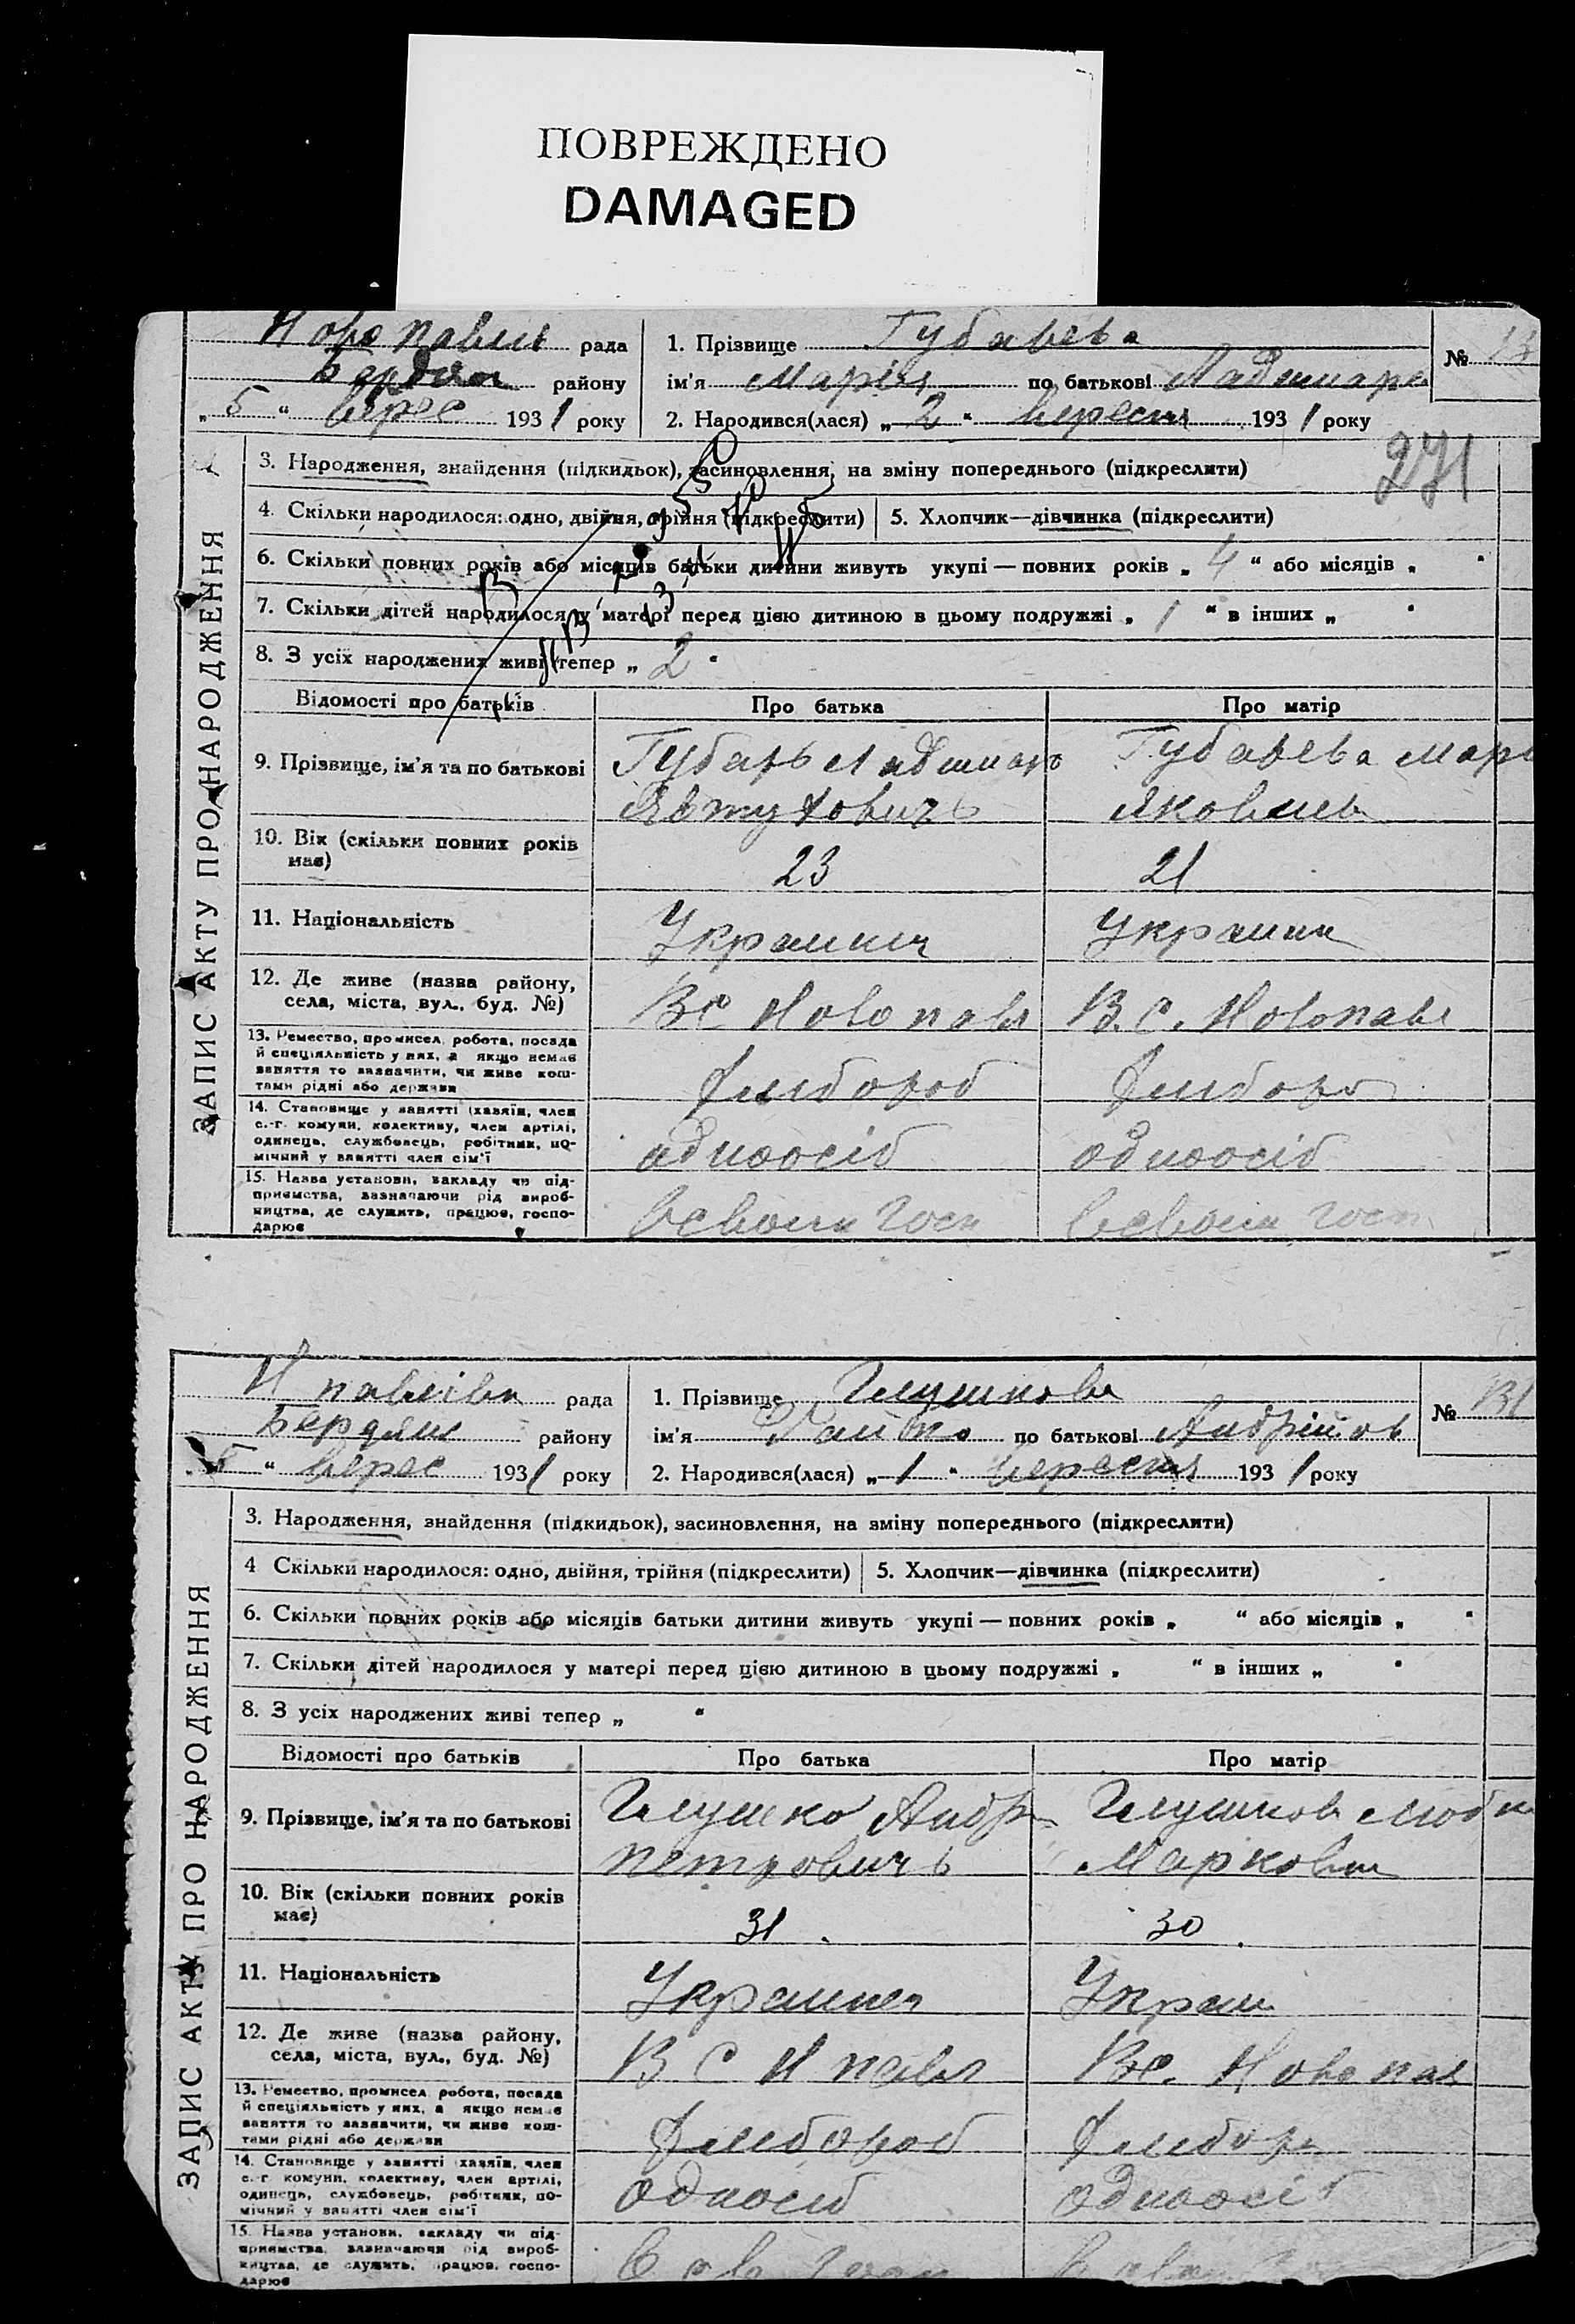 ПОВРЕЖДЕНО
DAMAGED
рада
району
„ 5 “ верес 1931 року
1. Прізвище Губарева
ім'я Марія по батькові
2. Народився(лася) „ 2 “ вересня 1931 року
№ 13
271
ЗАПИС АКТУ ПРО НАРОДЖЕННЯ
3. Народження, знайдення (підкидьок), засиновлення, на зміну попереднього (підкреслити)
4. Скільки народилося: одно, двійня, трійня (підкреслити) 5. Хлопчик—дівчинка (підкреслити)
6. Скільки повних років або місяців батьки дитини живуть укупі — повних років „ 4 “ або місяців „ “
7. Скільки дітей народилося у матері перед цією дитиною в цьому подружжі „ 1 “ в інших „ “
8. З усіх народжених живі тепер „ 2 “
Відомості про батьків Про батька Про матір
9. Прізвище, ім'я та по батькові Губарь Губарева Мар
Яковлев
10. Вік (скільки повних років
має) 23 21
11. Національність
12. Де живе (назва району,
села, міста, вул., буд. №) В С Новопавл В. С. Новопавл
13. Ремество, промисел, робота, посада
й спеціяльність у них, а якщо немає
заняття то зазначити, чи живе кош-
тами рідні або держави Хлибороб Хлиборо
14. Становище у занятті (хазяїн, член
с.-г. комуни, колективу, член артілі,
одинець, службовець, робітник, по-
мічний у занятті член сім'ї одноосіб одноосіб
15. Назва установи, закладу чи під-
приємства, зазначаючи рід вироб-
ництва, де служить, працює, госпо-
дарює
Н павлівка рада
Бердян району
„ 5 “ верес 1931 року
1. Прізвище Глушкова
ім'я по батькові Андрійов
2. Народився(лася) „ 1 “ вересня 1931 року
№ 131
ЗАПИС АКТУ ПРО НАРОДЖЕННЯ
3. Народження, знайдення (підкидьок), засиновлення, на зміну попереднього (підкреслити)
4 Скільки народилося: одно, двійня, трійня (підкреслити) 5. Хлопчик—дівчинка (підкреслити)
6. Скільки повних років або місяців батьки дитини живуть укупі — повних років „ “ або місяців „ “
7. Скільки дітей народилося у матері перед цією дитиною в цьому подружжі „ “ в інших „ “
8. З усіх народжених живі тепер „ “
Відомості про батьків Про батька Про матір
9. Прізвище, ім'я та по батькові Глушко Андр Глушков
Петровичь Марковн
10. Вік (скільки повних років
має) 31 30
11. Національність
12. Де живе (назва району,
села, міста, вул., буд. №) В С Н павл В С. Новопав
13. Ремество, промисел, робота, посада
й спеціяльність у них, а якщо немає
заняття то зазначити, чи живе кош-
тами рідні або держави Хлибороб Хлибор
14. Становище у занятті (хазяїн, член
с.-г. комуни, колективу, член артілі,
одинець, службовець, робітник, по-
мічний у занятті член сім'ї одноосіб одноосіб
15. Назва установи, закладу чи під-
приємства, зазначаючи рід вироб-
ництва, де служить, працює, госпо-
дарює